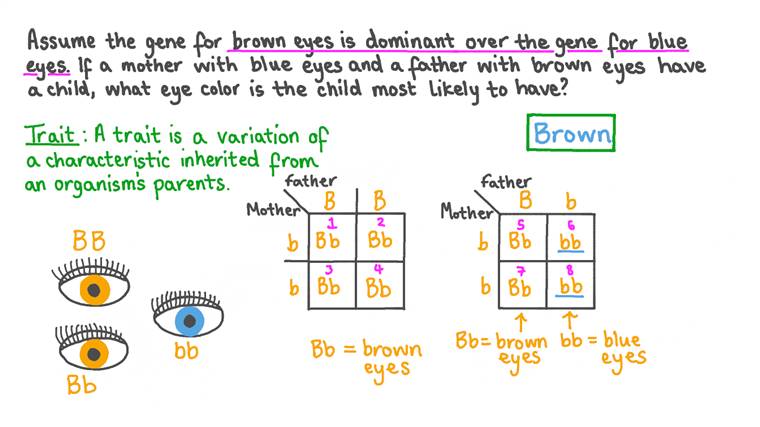 Assume the gene for brown eyes is dominant over the gene for blue
eyes. If a mother with blue eyes and a father with brown eyes have
a child, what eye color is the child most likely to have?
Trait: A trait is a variation of
a characteristic inherited from
an organism's parents.
Brown
Father
Mother
B B
1 2
b Bb Bb
3 4
b Bb Bb
Bb = brown
eyes
Father
Mother
B b
5 6
b Bb bb
7 8
b Bb bb
Bb = brown
eyes
bb = blue
eyes
BB
bb
Bb